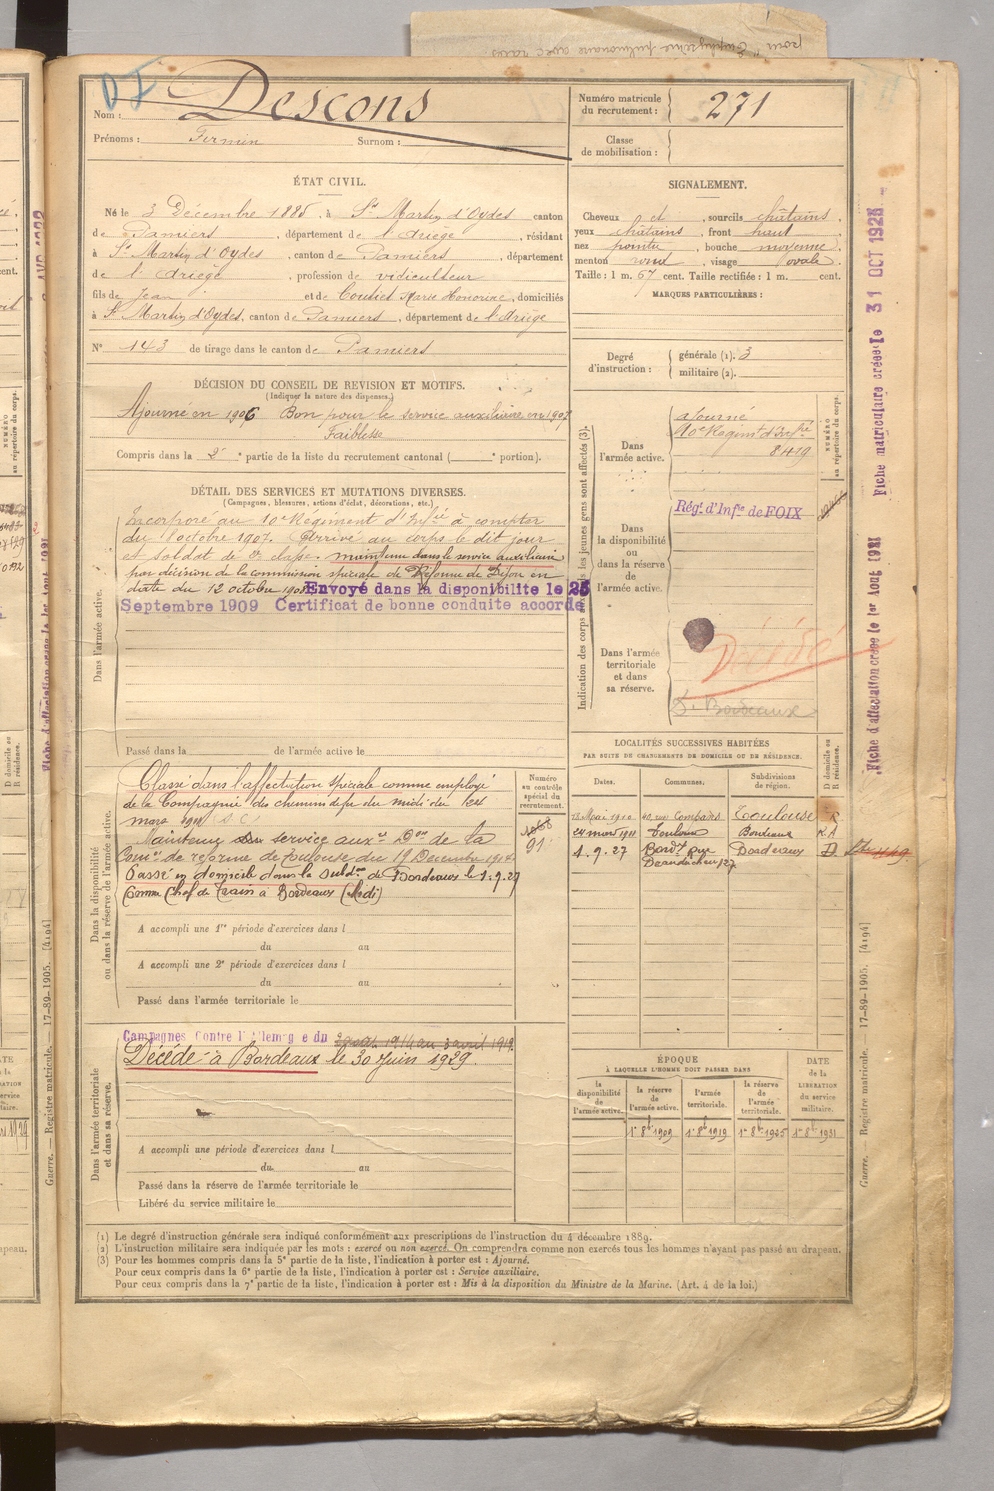 DI
Nom : Descons
Prénoms : Firmin Surnom :
Numéro matricule du recrutement : 271
Classe de mobilisation :
ÉTAT CIVIL.
Né le 3 Décembre 1885, à St Martin d'Oydes canton
de Pamiers, département de l'Ariège, résidant
à St Martin d'Oydes, canton de Pamiers, département
de l'Ariège, profession de
fils de Jean et de Marie Honorine, domiciliés
à St Martin d'Oydes, canton de Pamiers, département de l'Ariège
N° 143 de tirage dans le canton de Pamiers
SIGNALEMENT.
Cheveux et, sourcils châtains,
yeux châtains, front haut,
nez pointu, bouche moyenne,
menton rond, visage ovale.
Taille : 1 m. 67 cent. Taille rectifiée : 1 m. cent.
MARQUES PARTICULIÈRES :
Degré d'instruction : générale (1). 3
militaire (2).
DÉCISION DU CONSEIL DE REVISION ET MOTIFS.
(Indiquer la nature des dispenses.)
Ajourné en 1906 Bon pour le service auxiliaire en 1907
Faiblesse
Compris dans la 2e partie de la liste du recrutement cantonal ( e portion).
DÉTAIL DES SERVICES ET MUTATIONS DIVERSES.
(Campagnes, blessures, actions d'éclat, décorations, etc.)
Dans l'armée active.
Incorporé au 10e Régiment d'Infie à compter
du octobre 1907. Arrivé au corps le dit jour
et soldat de 2e classe. maintenu dans le service auxiliaire
par décision de la commission spéciale de Réforme de Dijon en
date du 12 octobre Envoyé dans la disponibilite le 25
Septembre 1909 Certificat de bonne conduite accordé
Passé dans la de l'armée active le
Indication des corps auxquels les jeunes gens sont affectés (3).
NUMÉRO au répertoire du corps.
Dans l'armée active.
ajourné
10e Régimt d'Infie
8419
Dans la disponibilité ou dans la réserve de l'armée active.
Rég. d'Infie de FOIX
Dans l'armée territoriale et dans sa réserve.
Décédé
S. Bordeaux
Dans la disponibilité ou dans la réserve de l'armée active.
Classé dans l'affectation spéciale comme employé
de la Compagnie des chemins de fer du midi du
mars 1911 S.C
Maintenu service auxre Don de la
Comon de réforme de Toulouse du 19 Décembre 1914
Passé en domicile dans la subdon de Bordeaux le 1.9.27
Comme Chef de train à Bordeaux (Midi)
Numéro au contrôle spécial du recrutement.
91
A accompli une 1re période d'exercices dans l
du au
A accompli une 2e période d'exercices dans l
du au
Passé dans l'armée territoriale le
LOCALITÉS SUCCESSIVES HABITÉES
PAR SUITE DU CHANGEMENTS DE DOMICILE OU DE RÉSIDENCE.
Dates. Communes. Subdivisions de région. D domicile ou R résidence.
Mai 1910 40, rue Toulouse R
24 mars 1911 Toulouse Bordeaux R.A
1.9.27 Bordx rue Bordeaux D
127
Dans l'armée territoriale et dans sa réserve.
Campagnes Contre l'Allemagne du
Décédé à Bordeaux le 30 Juin 1929
A accompli une période d'exercices dans l
du au
Passé dans la réserve de l'armée territoriale le
Libéré du service militaire le
ÉPOQUE
À LAQUELLE L'HOMME DOIT PASSER DANS
la disponibilité de l'armée active. la réserve de l'armée active. l'armée territoriale. la réserve de l'armée territoriale. DATE de la LIBÉRATION du service militaire.
1er 8bre 1909 1er 8bre 1919 1er 8bre 1925 1er 8bre 1931
(1) Le degré d'instruction générale sera indiqué conformément aux prescriptions de l'instruction du 4 décembre 1889.
(2) L'instruction militaire sera indiquée par les mots : exercé ou non exercé. On comprendra comme non exercés tous les hommes n'ayant pas passé au drapeau.
(3) Pour les hommes compris dans la 5e partie de la liste, l'indication à porter est : Ajourné.
Pour ceux compris dans la 6e partie de la liste, l'indication à porter est : Service auxiliaire.
Pour ceux compris dans la 7e partie de la liste, l'indication à porter est : Mis à la disposition du Ministre de la Marine. (Art. 4 de la loi.)
Fiche matriculaire créée le 31 OCT 1928
Fiche d'affectation créée le 1er Aout 1921
Guerre. — Registre matricule. — 17-89-1905. [4194]